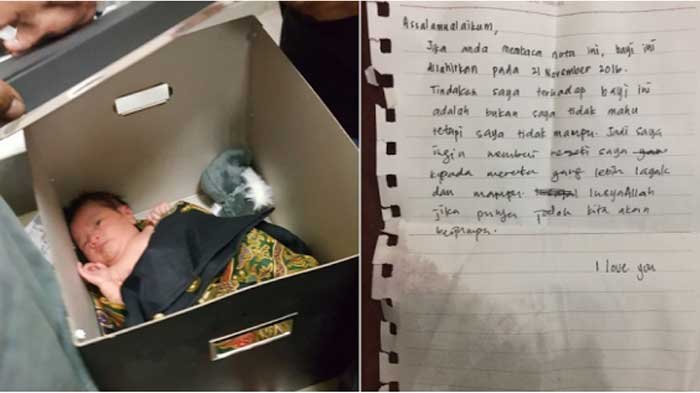 Assalamualaikum,
Jika anda membaca nota ini, bayi ini
dilahirkan pada 21 November 2016.
Tindakan saya terhadap bayi ini
adalah bukan saya tidak mahu
tetapi saya tidak mampu. Jadi saya
ingin memberi rezeki saya
kepada mereka yang lebih layak
dan mampu. InsyaAllah
jika punya jodoh kita akan
berjumpa.
I love you